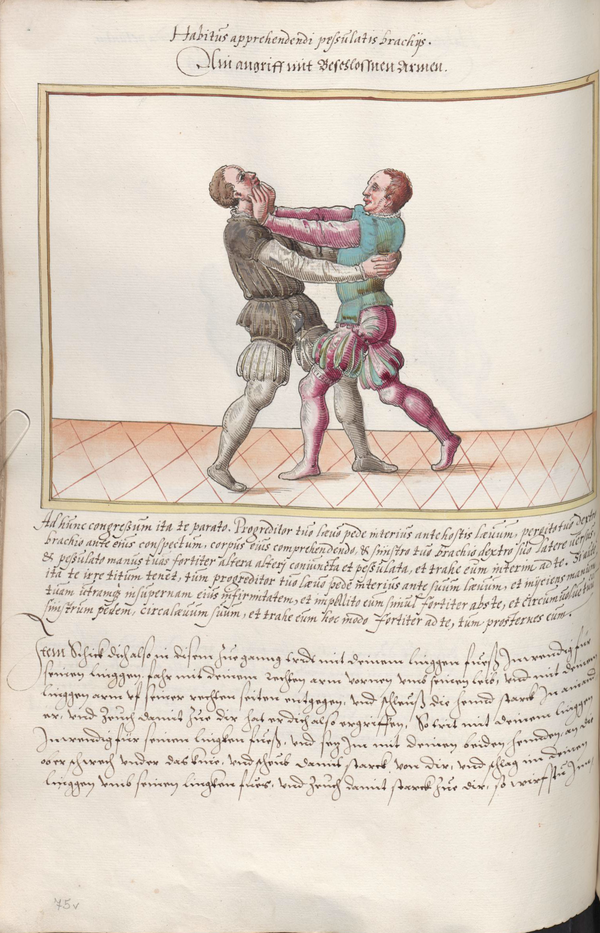 Habitus apprehendendi peſsulatis brachijs.
Ain angriff mit Beschlossnen Armen.
Ad hunc congreßum ita te parato. Progreditor tuo læuo pede interius ante hostis læuum, pergito tuo dextro
brachio ante eius conspectum, corpus eius comprehendendo, & sinistro tuo brachio dextro suo latere
& peſsulato manus tuas fortiter altera alterj coniuncta et peſsulata, et trahe eum interim ad te.
ita te irretitum tenet, tum progreditor tuo læuo pede interius ante suum læuum, et injciens manum
tuam utramq̃ insupernam eius infirmitatem, et impellito eum simul fortiter abs te, et
sinistrum pedem, circa læuum suum, et trahe eum hoc modo fortiter ad te, tum prosternes eum.
Item Schick dich also in disem Zuegang trit mit deinem linggen fuess Inwendig für
seinen linggen, fahr mit deinem rechten arm vornen umb seinen leib, und mit deinem
linggen arm uf seiner rechten seiten entgegen, und schleuß die hennd starck In ainand
er, und Zeuch damit Zue dir, hat er dich also ergriffen, So trit mit deinem linggen
Inwendig für seinen lingken fuess, und setz Im mit deinen beiden hennden, an die
ober schwech under das knie, und scheub damit starck von dir, und schlag im deinen
linggen umb seinen lingken fues, und Zeuch damit starck Zue dir, so wirfstu Inn.
75v